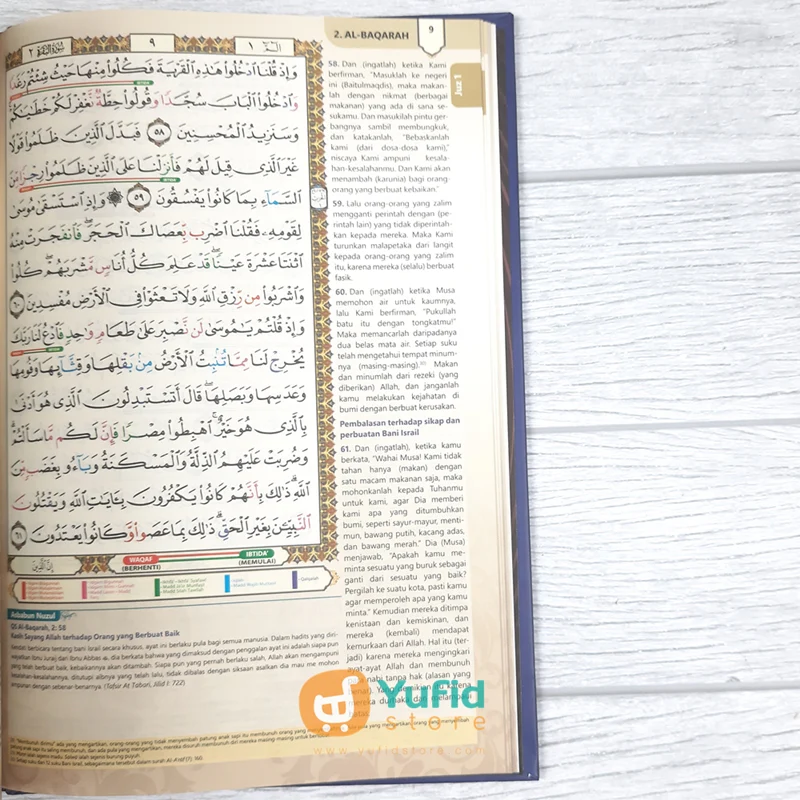 سورة البقرة ٢
٩
الٓمّٓ ١
وَإِذْ قُلْنَا ادْخُلُوا هَٰذِهِ الْقَرْيَةَ فَكُلُوا مِنْهَا حَيْثُ شِئْتُمْ رَغَدًا
وَادْخُلُوا الْبَابَ سُجَّدًا وَقُولُوا حِطَّةٌ نَغْفِرْ لَكُمْ خَطَايَاكُمْ
وَسَنَزِيدُ الْمُحْسِنِينَ ٥٨ فَبَدَّلَ الَّذِينَ ظَلَمُوا قَوْلًا
غَيْرَ الَّذِي قِيلَ لَهُمْ فَأَنْزَلْنَا عَلَى الَّذِينَ ظَلَمُوا رِجْزًا مِنَ
السَّمَاءِ بِمَا كَانُوا يَفْسُقُونَ ٥٩ ۞ وَإِذِ اسْتَسْقَىٰ مُوسَىٰ
لِقَوْمِهِ فَقُلْنَا اضْرِبْ بِعَصَاكَ الْحَجَرَ ۖ فَانْفَجَرَتْ مِنْهُ
اثْنَتَا عَشْرَةَ عَيْنًا ۖ قَدْ عَلِمَ كُلُّ أُنَاسٍ مَشْرَبَهُمْ ۖ كُلُوا
وَاشْرَبُوا مِنْ رِزْقِ اللَّهِ وَلَا تَعْثَوْا فِي الْأَرْضِ مُفْسِدِينَ ٦٠
وَإِذْ قُلْتُمْ يَا مُوسَىٰ لَنْ نَصْبِرَ عَلَىٰ طَعَامٍ وَاحِدٍ فَادْعُ لَنَا رَبَّكَ
يُخْرِجْ لَنَا مِمَّا تُنْبِتُ الْأَرْضُ مِنْ بَقْلِهَا وَقِثَّائِهَا وَفُومِهَا
وَعَدَسِهَا وَبَصَلِهَا ۖ قَالَ أَتَسْتَبْدِلُونَ الَّذِي هُوَ أَدْنَىٰ
بِالَّذِي هُوَ خَيْرٌ ۚ اهْبِطُوا مِصْرًا فَإِنَّ لَكُمْ مَا سَأَلْتُمْ ۗ
وَضُرِبَتْ عَلَيْهِمُ الذِّلَّةُ وَالْمَسْكَنَةُ وَبَاءُوا بِغَضَبٍ مِنَ
اللَّهِ ۗ ذَٰلِكَ بِأَنَّهُمْ كَانُوا يَكْفُرُونَ بِآيَاتِ اللَّهِ وَيَقْتُلُونَ
النَّبِيِّينَ بِغَيْرِ الْحَقِّ ۗ ذَٰلِكَ بِمَا عَصَوْا وَكَانُوا يَعْتَدُونَ ٦١
WAQAF
(BERHENTI)
IBTIDA'
(MEMULAI)
Asbabun Nuzul
QS Al-Baqarah, 2: 58
Kasih Sayang Allah terhadap Orang yang Berbuat Baik
berlaku pula bagi semua manusia. Dalam hadits yang diri-
dia berkata bahwa yang dimaksud dengan penggalan ayat ini adalah siapa pun
yang telah berbuat baik, kebaikannya akan ditambah. Siapa pun yang pernah berbuat salah, Allah akan mengampuni
(Tafsir At Tabari, Jilid I: 722)
2. AL-BAQARAH
9
Juz 1
58. Dan (ingatlah) ketika Kami
berfirman, "Masuklah ke negeri
ini (Baitulmaqdis), maka makan-
lah dengan nikmat (berbagai
makanan) yang ada di sana se-
sukamu. Dan masukilah pintu ger-
bangnya sambil membungkuk,
dan katakanlah, "Bebaskanlah
kami (dari dosa-dosa kami),"
niscaya Kami ampuni kesala-
han-kesalahanmu. Dan Kami akan
menambah (karunia) bagi orang-
orang yang berbuat kebaikan."
59. Lalu orang-orang yang zalim
mengganti perintah dengan (pe-
rintah lain) yang tidak diperintah-
kan kepada mereka. Maka Kami
turunkan malapetaka dari langit
kepada orang-orang yang zalim
itu, karena mereka (selalu) berbuat
fasik.
60. Dan (ingatlah) ketika Musa
memohon air untuk kaumnya,
lalu Kami berfirman, "Pukullah
batu itu dengan tongkatmu!"
Maka memancarlah daripadanya
dua belas mata air. Setiap suku
telah mengetahui tempat minum-
nya (masing-masing). Makan
dan minumlah dari rezeki (yang
diberikan) Allah, dan janganlah
kamu melakukan kejahatan di
bumi dengan berbuat kerusakan.
Pembalasan terhadap sikap dan
perbuatan Bani Israil
61. Dan (ingatlah), ketika kamu
berkata, "Wahai Musa! Kami tidak
tahan hanya (makan) dengan
satu macam makanan saja, maka
mohonkanlah kepada Tuhanmu
untuk kami, agar Dia memberi
kami apa yang ditumbuhkan
bumi, seperti sayur-mayur, menti-
mun, bawang putih, kacang adas,
dan bawang merah." Dia (Musa)
menjawab, "Apakah kamu me-
minta sesuatu yang buruk sebagai
ganti dari sesuatu yang baik?
Pergilah ke suatu kota, pasti kamu
agar memperoleh apa yang kamu
minta." Kemudian mereka ditimpa
kenistaan dan kemiskinan, dan
mereka (kembali) mendapat
kemurkaan dari Allah. Hal itu (ter-
jadi) karena mereka mengingkari
ayat-ayat Allah dan membunuh
nabi tanpa hak (alasan yang
Yufid
store
www.yufidstore.com